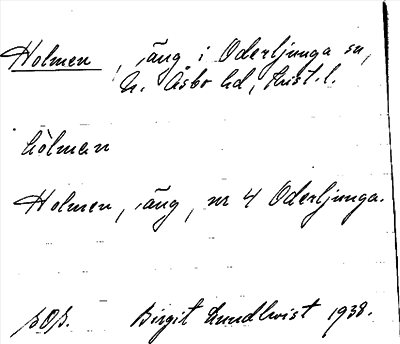 Holmen, äng i Oderljunga sn,
N. Åsbo hd, Krist. l.
hòlmən
Holmen, äng, nr 4 Oderljunga.
Birgit Lundkvist 1938.